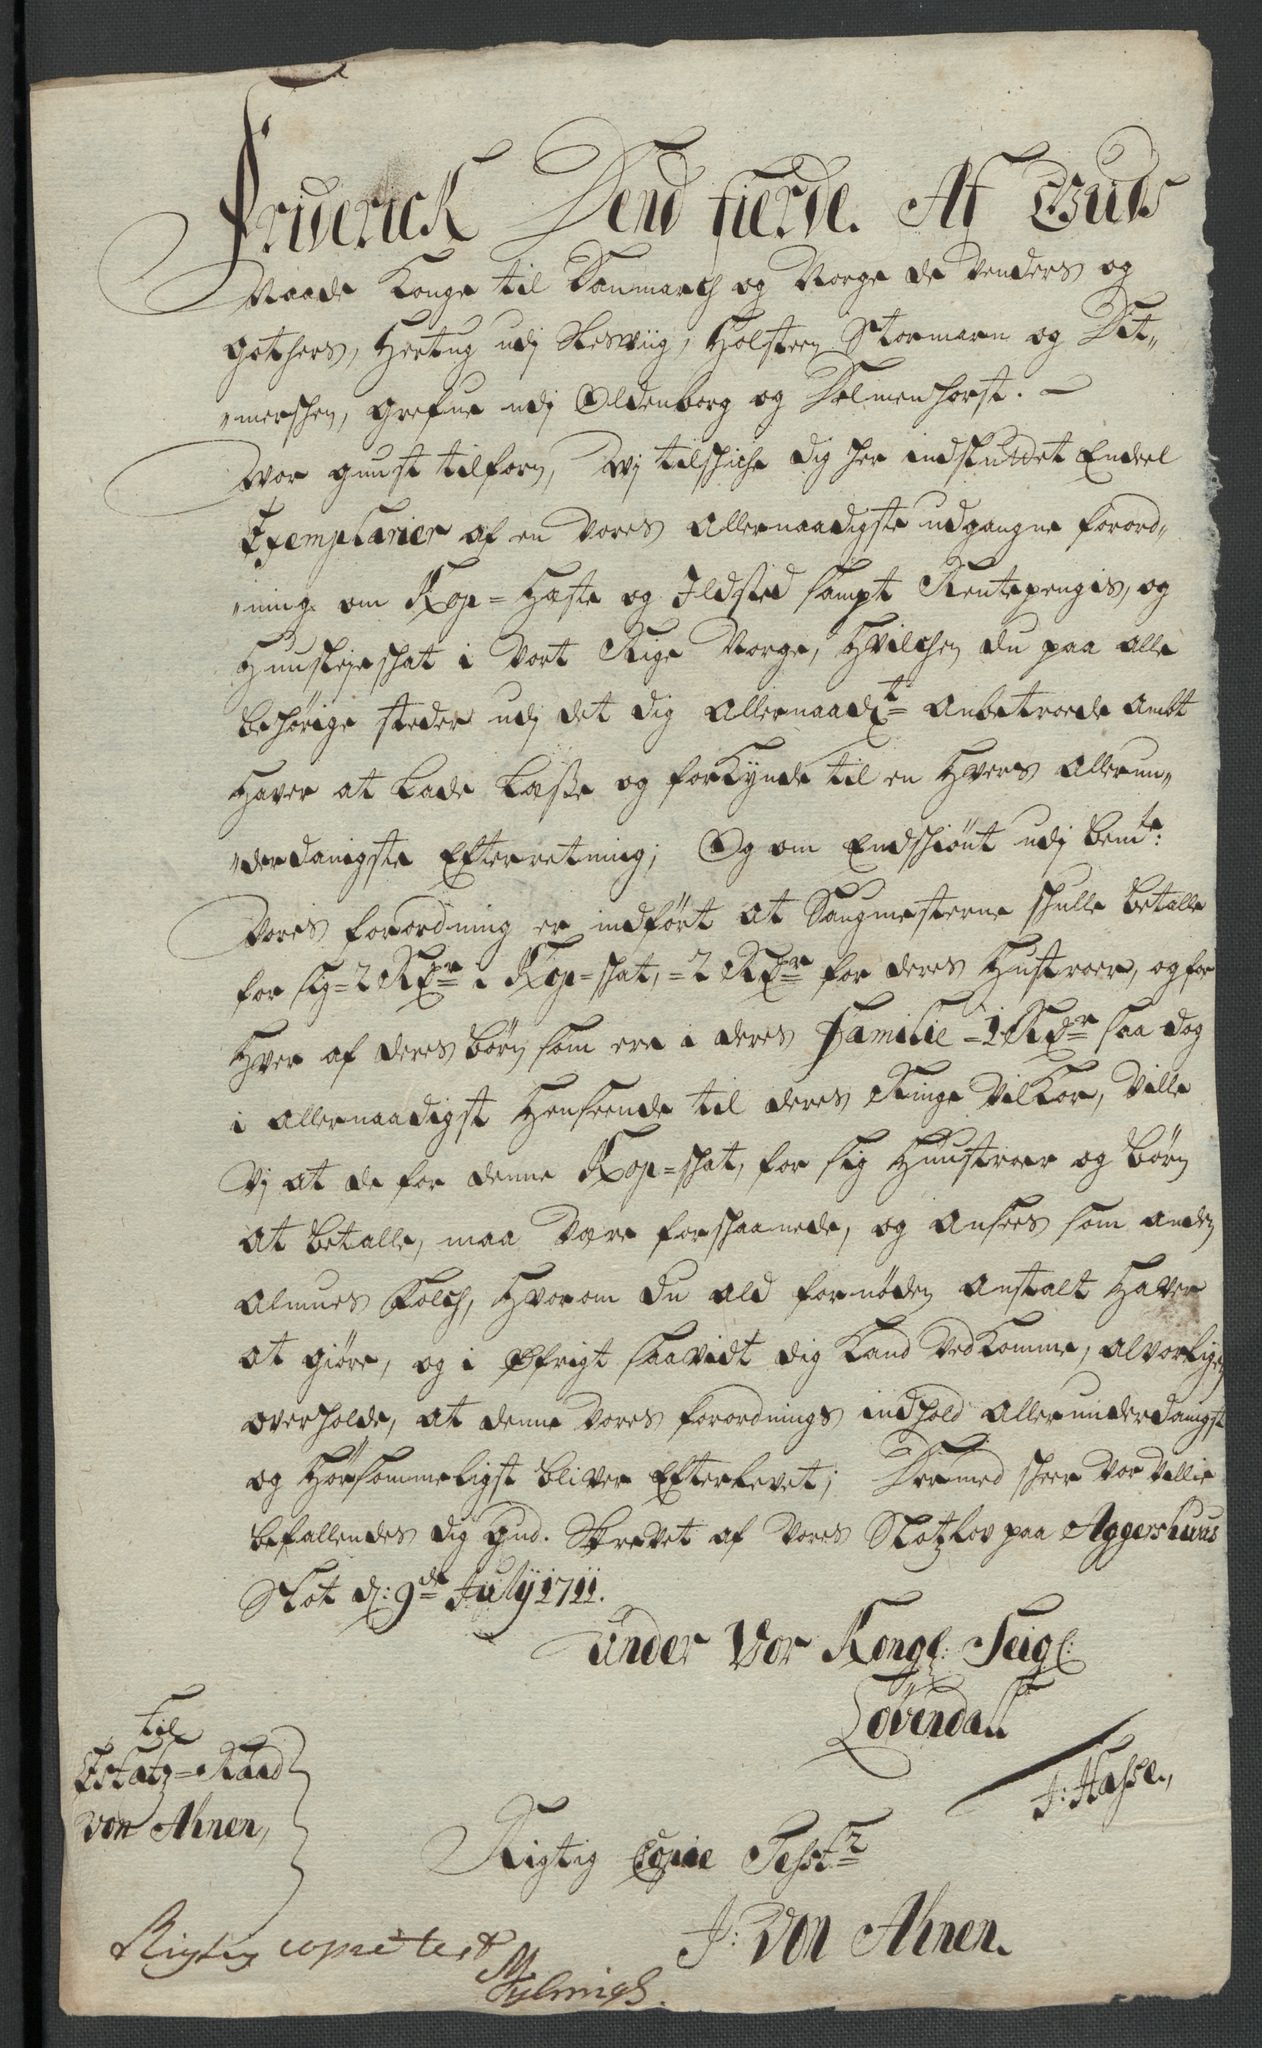 Friderick Dend fierde. Af Guds
Naade Konge til Danmarch og Norge de Venders og
Gothers, Hertug udj Slesviig, Holsteen Stormarn og Dit„
„mershen, Grefue udj Oldenborg og Delmenhorst. —
Vor gunst tilforn, Wj tilschiche dig her indsluttet Endeel
Exemplarier af en Vores allernaadigste udgangne forord„
„ning om Kop= Heste og Ildsted sampt Rentepengis, og
Huusleje schat i Vort Rige Norge, Hvilchen du paa alle
behörige steder udj det dig allernaadt= anbetroede ambt
Haver at lade læsse og forkynde til en Hvers allerun„
„derdanigste Efterretning; Og om Endschiönt udj bemte:
Voris forordning er indfört at Saugmesterne schulle betalle
for sig =2 Rdr i Kop=schat, =2 Rdr for deres Hustroer, og for
Hver af deres börn som ere i deres Familie =1 Rdr saa dog
i allernaadigst Henseende til deres Ringe Vilkor, Ville
Vj at de for denne Kop=schat, for sig Huustroer og börn
at betalle, maa Være forschaanede, og ansees som anden
almues folch, Hvorom du ald fornöden anstalt Haver
at giöre, og i Øfrigt saavidt dig kand Vedkomme, alvorligen
overholde, at denne Vores forordnings indhold allerunderdanigst
og Hörsommeligst bliver Efterlevet; Dermed scheer Vor Villie
befallendes dig Gud. Skrevet af Vores Slotzlov paa Aggershuus
Slot d: 9de July 1711.
Under Vor Kongl: Seigl:
Lövendall
J: Hassel,
til
Estatz=Raad
Von Ahnen,
Rigtig Copie Testr
J: Von Ahnen.
Rigtig copie test